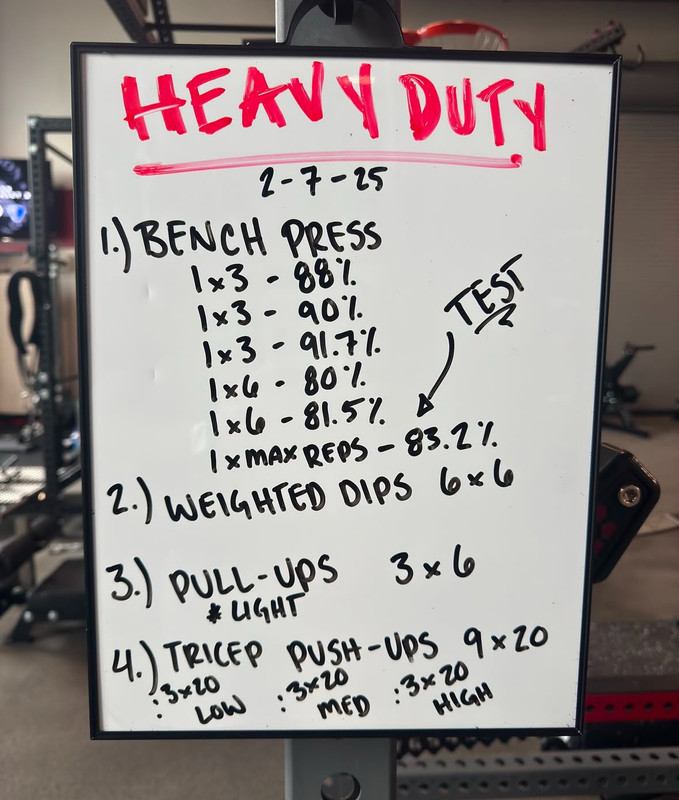 HEAVY DUTY
2-7-25
1.) BENCH PRESS
1x3 - 88%
1x3 - 90%
1x3 - 91.7%
1x6 - 80%
1x6 - 81.5%
TEST
1xMAX REPS - 83.2%
2.) WEIGHTED DIPS 6x6
3.) PULL-UPS 3x6
* LIGHT
4.) TRICEP PUSH-UPS 9x20
:3x20 LOW :3x20 MED :3x20 HIGH